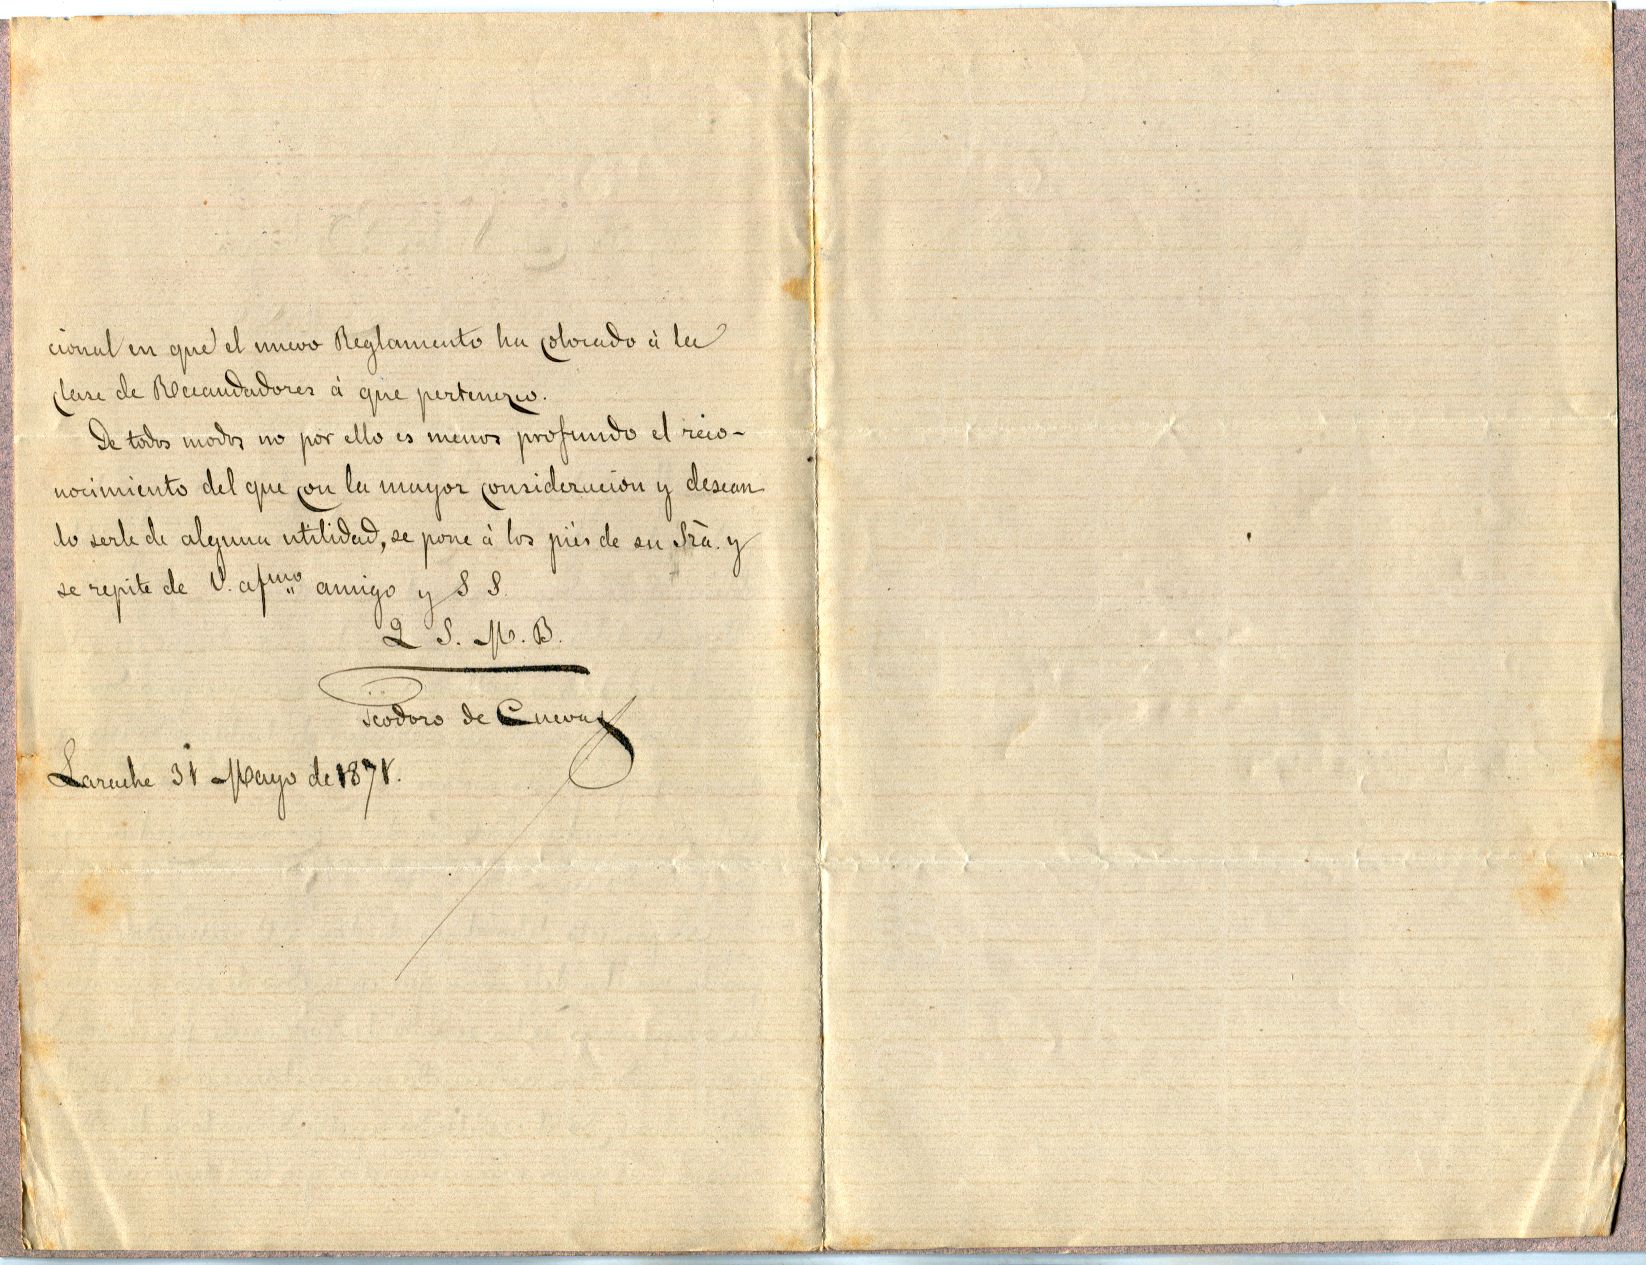 cional en que el nuevo Reglamento ha colocado á la
clase de Recaudadores á que pertenezco.
De todos modos no por ello es menos profundo el reco-
nocimiento del que con la mayor consideracion y desean
do serle de alguna utilidad, se pone á los piés de su Sra. y
se repite de V. afmo amigo y S S.
Q S. M. B.
Teodoro de Cuevas
Larache 31 Mayo de 1871.